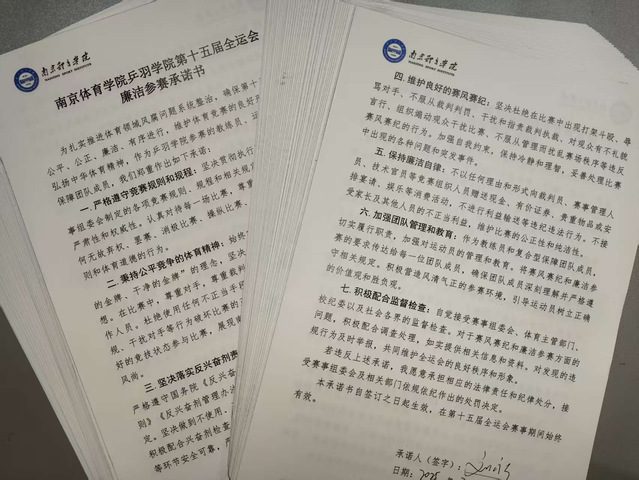 南京体育学院
NANJING SPORT INSTITUTE
南京体育学院乒羽学院第十五届全运会
廉洁参赛承诺书
为扎实推进体育领域风腐问题系统整治，确保第十
公平、公正、廉洁、有序进行，维护体育竞赛的良好
弘扬中华体育精神，作为乒羽学院参赛的教练员、运
保障团队成员，我们郑重作出如下承诺：
一、严格遵守竞赛规则和规程：坚决贯彻执行
事组委会制定的各项竞赛规则、规程和相关规定
严肃性和权威性。认真对待每一场比赛，尊重
何无故弃权、罢赛、消极比赛、操纵比赛、
则和体育道德的行为。
二、秉持公平竞争的体育精神：始终
的金牌、干净的金牌”的理念，坚决
想。在比赛中，尊重对手、尊重裁判
作人员。杜绝使用任何不正当手段
规、干扰对手等行为破坏比赛的
好的竞技状态参与比赛，展现南
风尚。
三、坚决落实反兴奋剂责
严格遵守国务院《反兴奋剂
则》《反兴奋剂管理办法
定。坚决做到不使用、
积极配合兴奋剂检查
等环节安全可靠，严
南京体育学院
NANJING SPORT INSTITUTE
四、维护良好的赛风赛纪：坚决杜绝在比赛中出现打架斗殴、辱
骂对手、不服从裁判判罚、干扰和指责裁判执裁、对观众有不礼貌
言行、组织煽动观众干扰比赛、不服从管理而扰乱赛场秩序等违反
赛风赛纪的行为。加强自我约束，保持冷静和理智，妥善处理比赛
中出现的各种问题和突发事件。
五、保持廉洁自律：不以任何理由和形式向裁判员、赛事管理人
员、技术官员等竞赛组织人员赠送现金、有价证券、贵重物品或安
排宴请，娱乐等消费活动，不进行利益输送等违纪违法行为。不接
受家长及其他人员的不正当利益，维护比赛的公正性和纯洁性。
六、加强团队管理和教育：作为教练员和复合型保障团队成员，
切实履行职责，加强对运动员的管理和教育。将赛风赛纪和廉洁参
赛的要求传达给每一位团队成员，确保团队成员深刻理解并严格遵
守相关规定。积极营造风清气正的参赛环境，引导运动员树立正确
的价值观和胜负观。
七、积极配合监督检查：自觉接受赛事组委会、体育主管部门、
校纪委以及社会各界的监督检查。对于赛风赛纪和廉洁参赛方面的
问题，积极配合调查处理，如实提供相关信息和资料。对发现的违
规行为及时举报，共同维护全运会的良好秩序和形象。
若违反上述承诺，我愿意承担相应的法律责任和纪律处分，接
受赛事组委会及相关部门依规依纪作出的处罚决定。
本承诺书自签订之日起生效，在第十五届全运会赛事期间始终
有效。
承诺人（签字）：
日期：2025